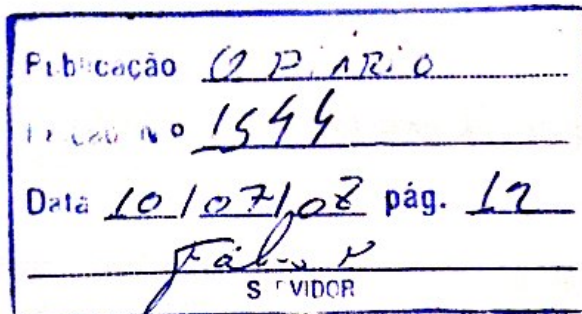 Publicação O DIÁRIO
Edição Nº 1544
Data 10/07/08 pág. 12
Fábio P
SERVIDOR